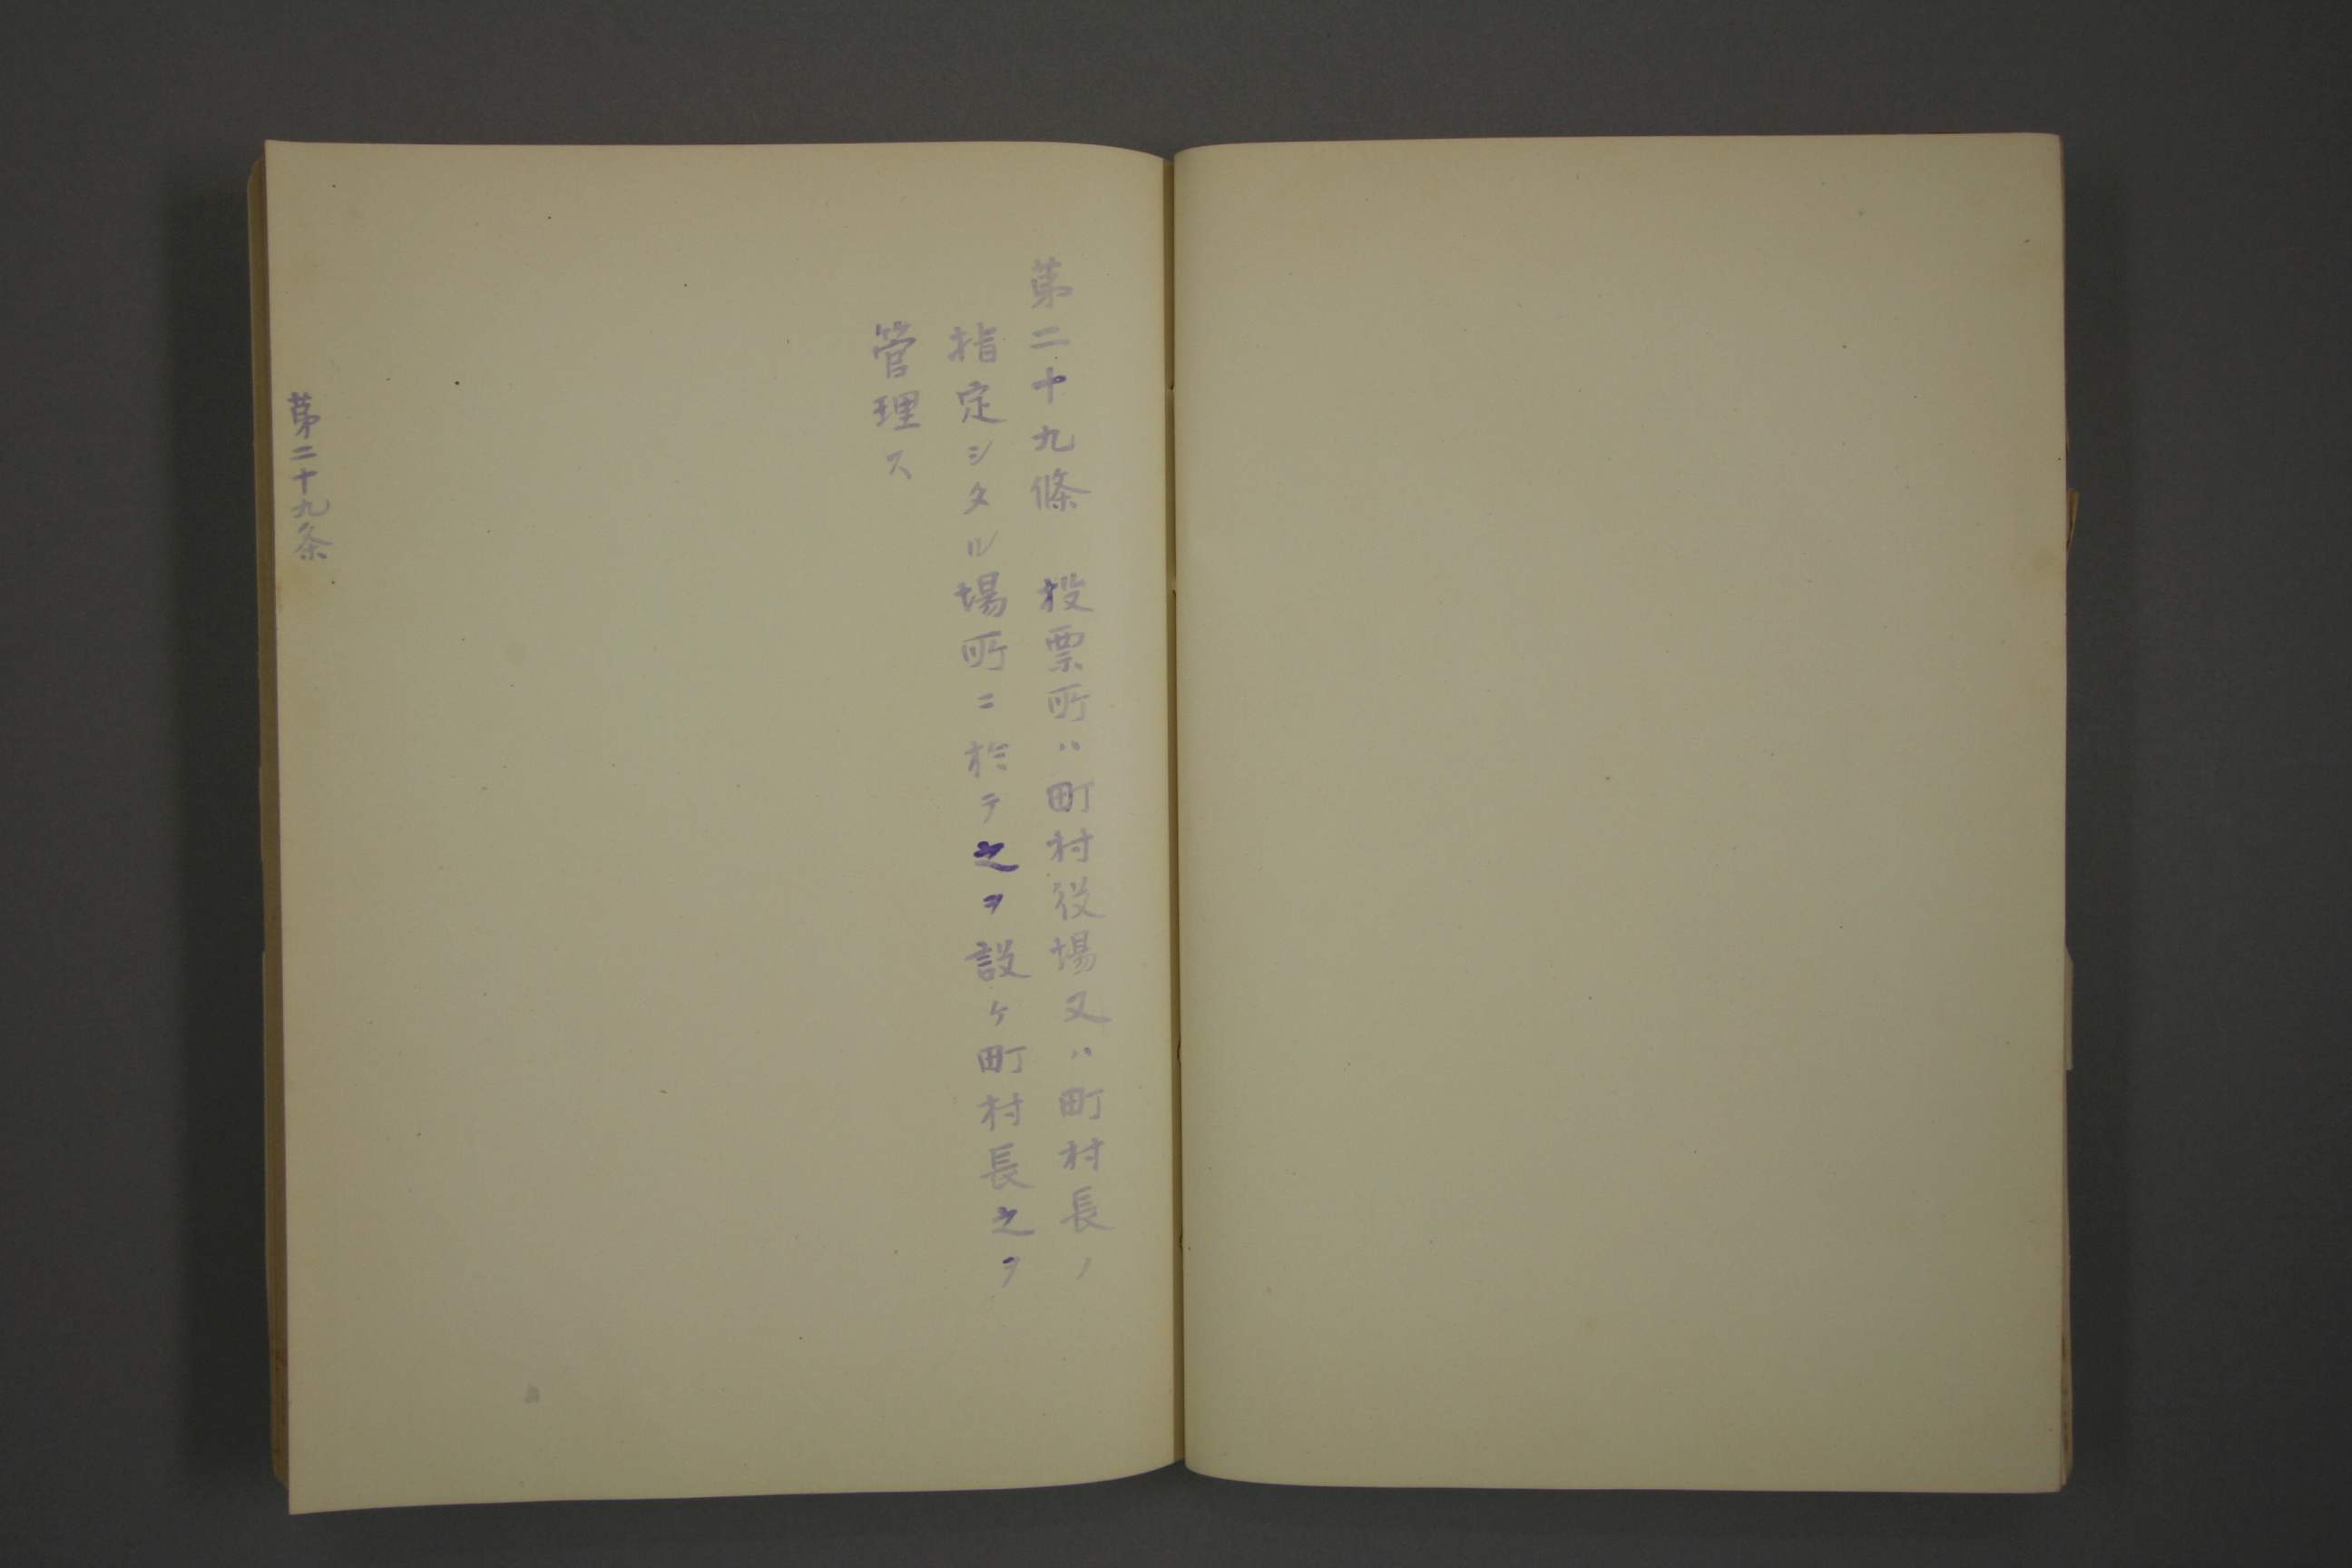 第二十九條　投票所ハ町村役場又ハ町村長ノ
指定シタル場所ニ於テ之ヲ設ケ町村長之ヲ
管理ス
第二十九条